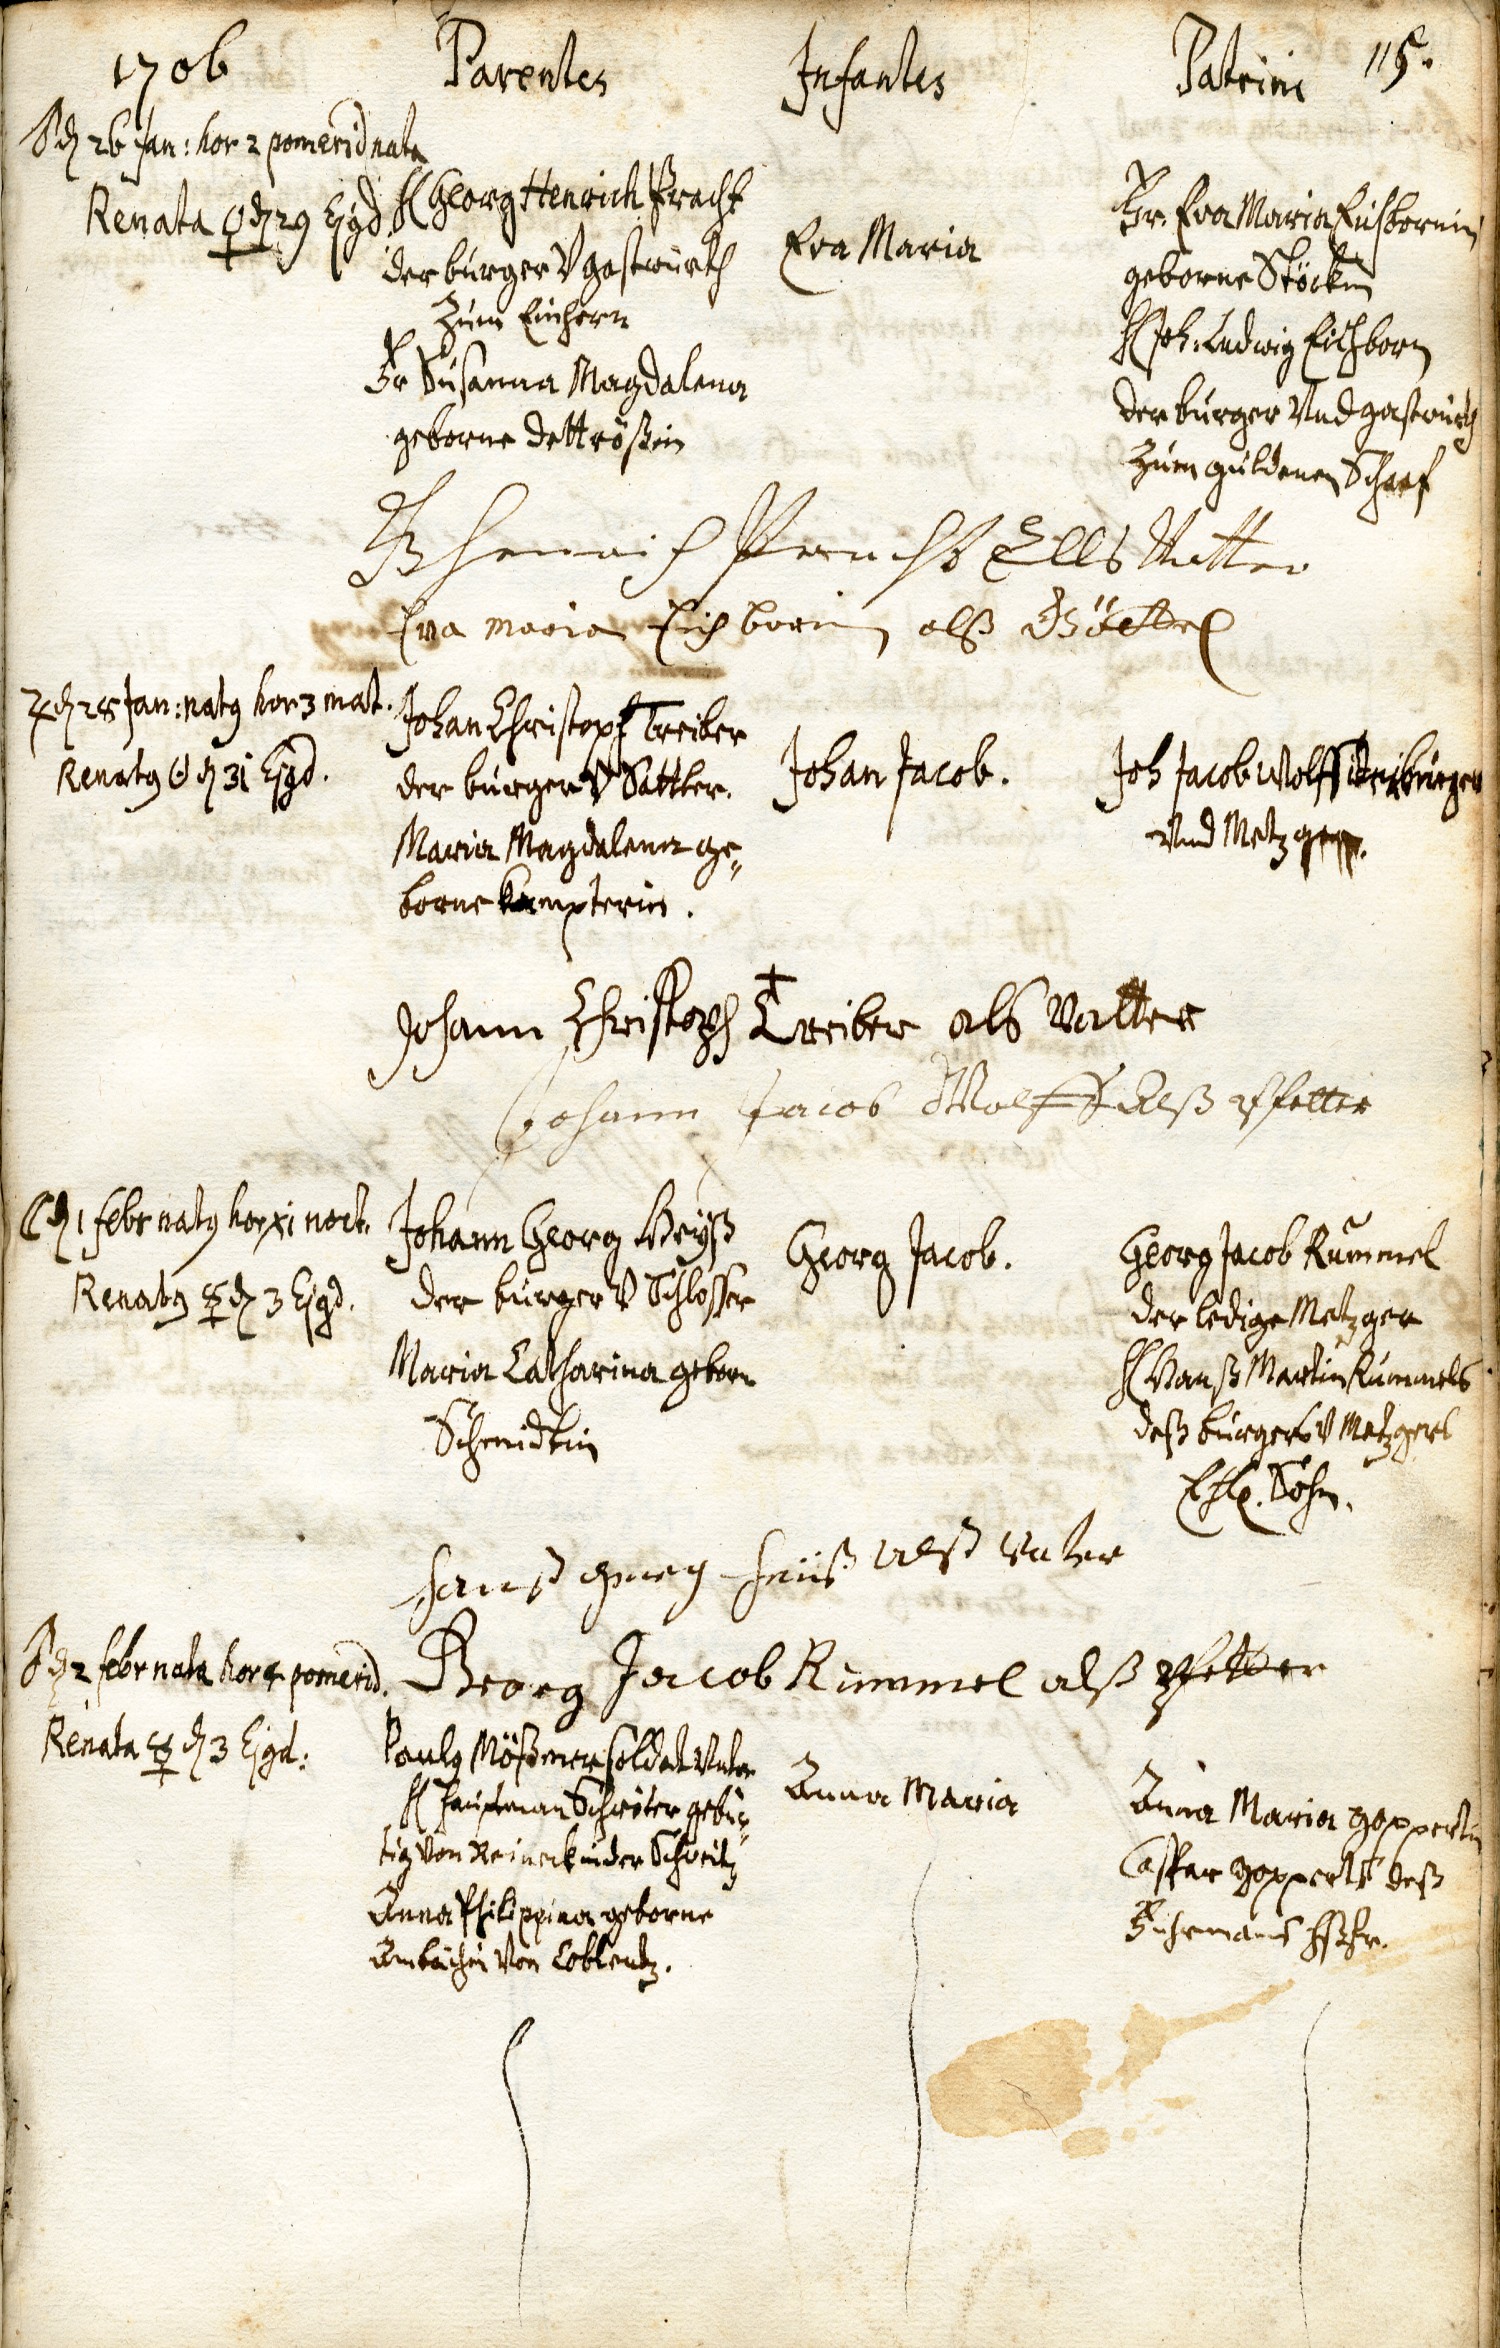 1706 Parentes Infantes Patrini 115.
♂ d 26 Jan: hor 2 pomerid nata
Renata ♀ d 29 Ejgd.
H Georg Henrich Pracht
der burger V gastwürth
Zum Einhorn
Fr Susanna Magdalena
geborne
Eva Maria
Fr. Eva Maria
geborne Stöckin
H Joh. Ludwig Eichborn
der burger Vnd gastwürth
Zum güldenen Schaaf
Henrich Pracht Alls Vatter
Eva maria Eichborin alß Göttel
♃ d 28 Jan: natg hor 3 mat.
Renatg ☉ d 31 Ejgd.
Johan Christoph Treiber
der burger V Sattler.
Maria Magdalena ge„
borne Kampterin.
Johan Jacob.
Joh Jacob Wolff der burger
Vnd Metzger.
Johann Christoph Treiber als Vatter
Johann Jacob Wolff Alß Pfetter
☾ d 1 febr natg hor xi noct.
Renatg ☿ d 3 Ejgd.
Johann Georg Heyß
der burger V Schlosser
Maria Catharina geborn
Schmidtin
Georg Jacob.
Georg Jacob Kummel
der ledige Metzger
H Hanß Martin Kummels
deß burgers V Metzgers
Ehl. Sohn.
hanß georg heiß alß Vater
Georg Jacob Kummel alß pfetter
♂ d 2 febr nata hor 4 pomerid.
Renata ☿ d 3 Ejgd:
Paulg Mößmer soldat Vnter
H Hauptman Schröter gebür„
tig Von Reineck in der Schweitz
Anna Philippina geborne
Von Coblentz.
Anna Maria
Anna Maria Goppertin
Caspar Gopperts deß
Fuhrmans